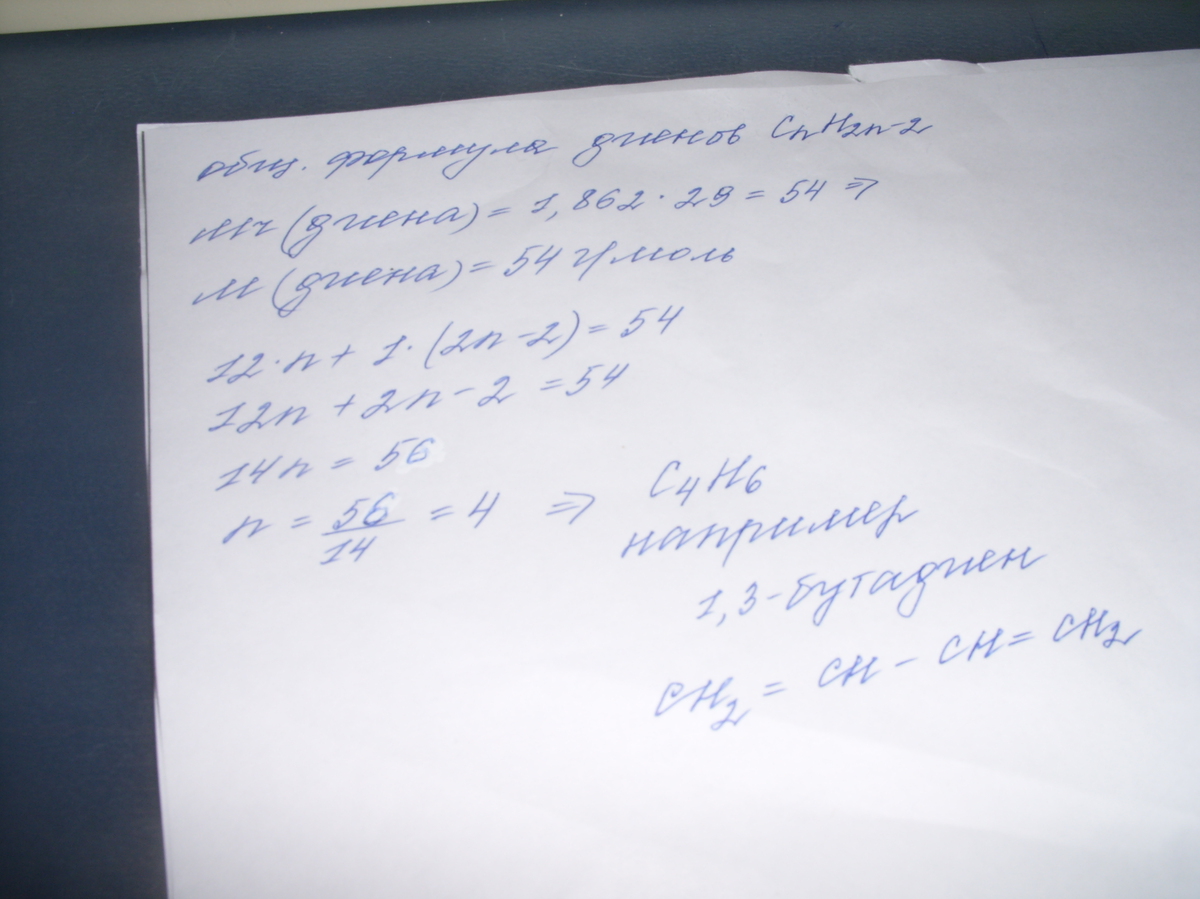 общ. формула диенов CnH2n-2
Mr (диена) = 1,862 · 29 = 54 ⇒
M (диена) = 54 г/моль
12 · n + 1 · (2n - 2) = 54
12n + 2n - 2 = 54
14n = 56
n = 56/14 = 4 ⇒ C4H6
например
1,3-бутадиен
CH2 = CH - CH = CH2